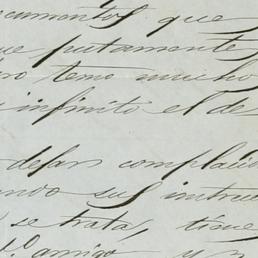 cumentos que
putamente
temo mucho
infinito el de
dejar complaci
ando sus instruc
se trata, time
amigo y